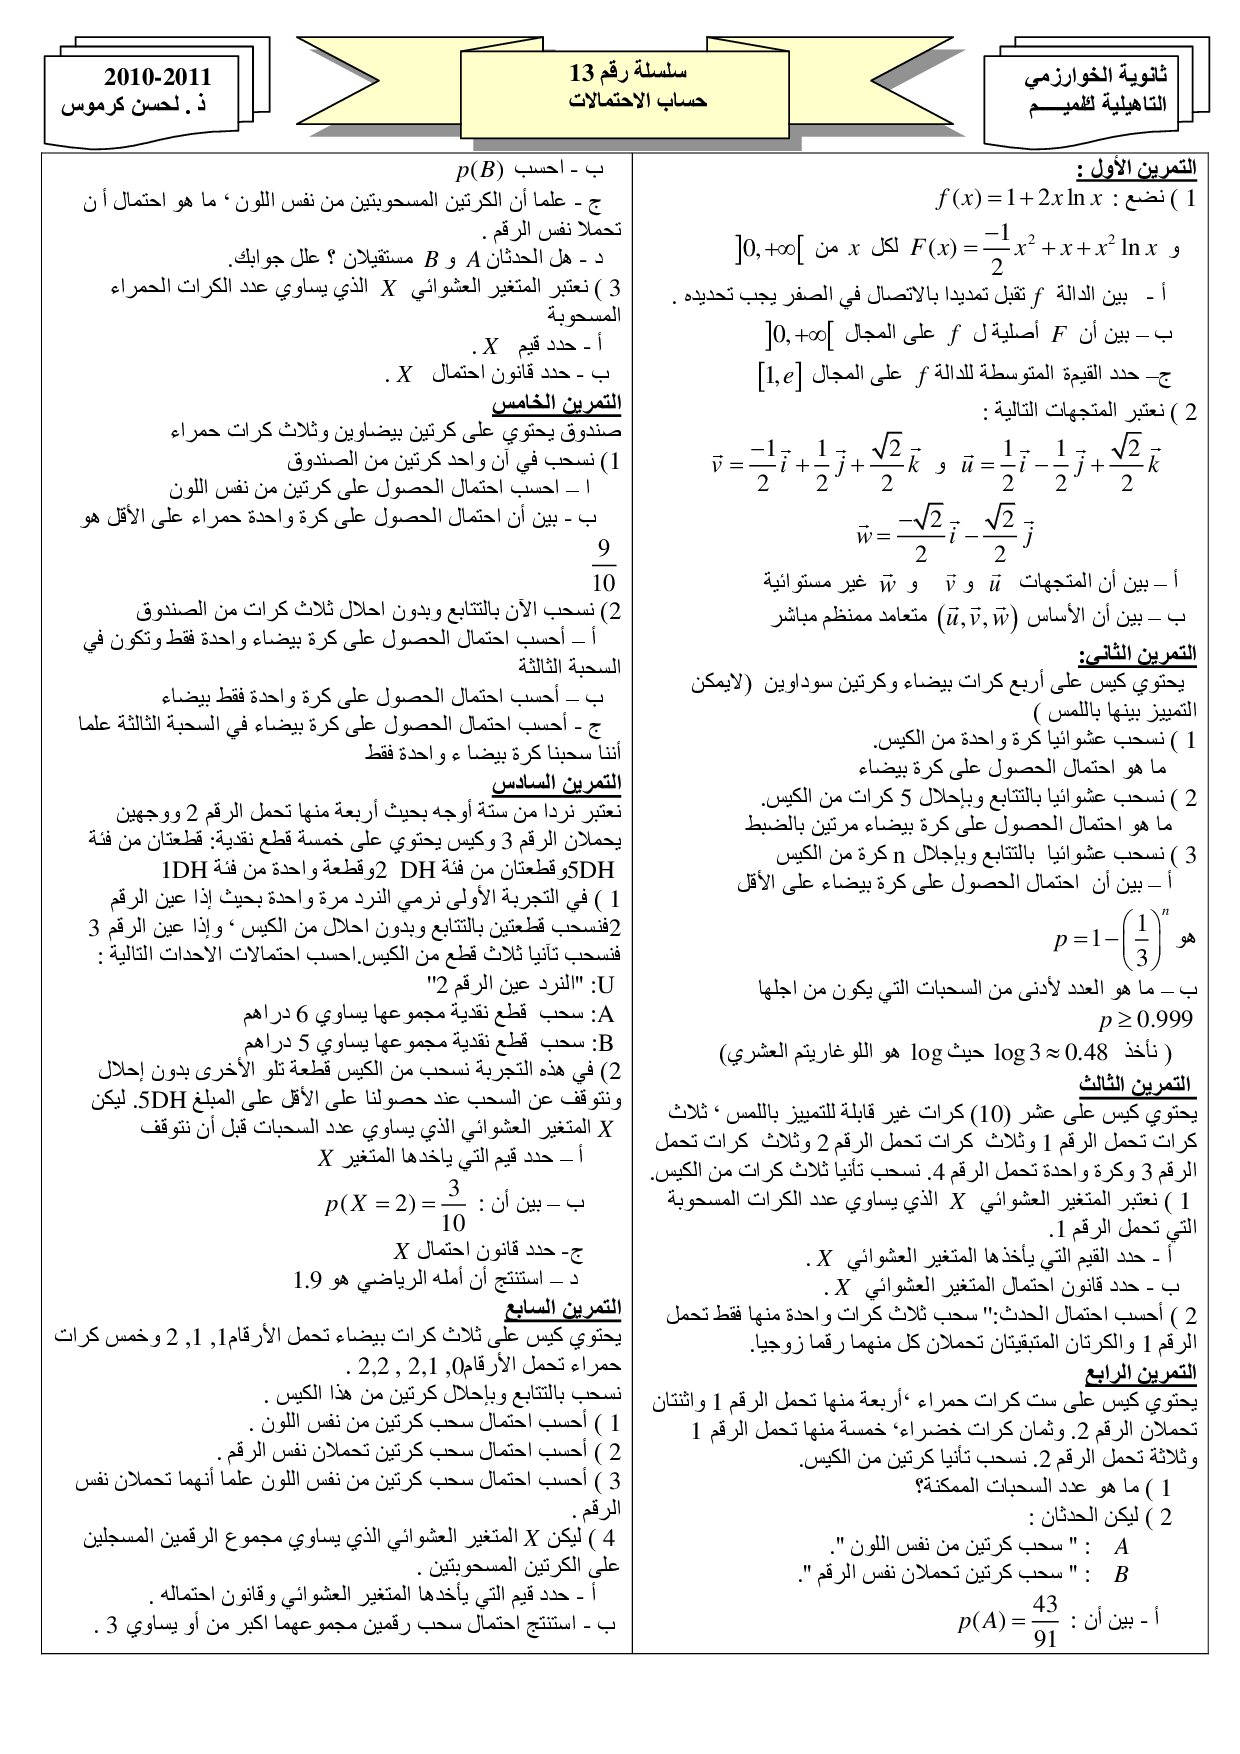 ثانوية الخوارزمي
التاهيلية كلميـــــم
سلسلة رقم 13
حساب الاحتمالات
2010-2011
ذ . لحسن كرموس
التمرين الأول :
1 ) نضع : f(x) = 1 + 2x ln x
و F(x) = \frac{-1}{2}x² + x + x² ln x لكل x من ]0,+∞[
أ - بين الدالة f تقبل تمديدا بالاتصال في الصفر يجب تحديده .
ب – بين أن F أصلية ل f على المجال ]0,+∞[
ج– حدد القيمة المتوسطة للدالة f على المجال [1,e]
2 ) نعتبر المتجهات التالية :
\vec{u} = \frac{1}{2}\vec{i} - \frac{1}{2}\vec{j} + \frac{\sqrt{2}}{2}\vec{k} و \vec{v} = \frac{-1}{2}\vec{i} + \frac{1}{2}\vec{j} + \frac{\sqrt{2}}{2}\vec{k}
\vec{w} = \frac{-\sqrt{2}}{2}\vec{i} - \frac{\sqrt{2}}{2}\vec{j}
أ – بين أن المتجهات \vec{u} و \vec{v} و \vec{w} غير مستوائية
ب – بين أن الأساس (\vec{u},\vec{v},\vec{w}) متعامد ممنظم مباشر
التمرين الثاني:
يحتوي كيس على أربع كرات بيضاء وكرتين سوداوين (لايمكن
التمييز بينها باللمس )
1 ) نسحب عشوائيا كرة واحدة من الكيس.
ما هو احتمال الحصول على كرة بيضاء
2 ) نسحب عشوائيا بالتتابع وبإحلال 5 كرات من الكيس.
ما هو احتمال الحصول على كرة بيضاء مرتين بالضبط
3 ) نسحب عشوائيا بالتتابع وبإجلال n كرة من الكيس
أ – بين أن احتمال الحصول على كرة بيضاء على الأقل
هو p = 1 - (\frac{1}{3})^n
ب – ما هو العدد لأدنى من السحبات التي يكون من اجلها
p ≥ 0.999
( نأخذ log 3 ≈ 0.48 حيث log هو اللوغاريتم العشري)
التمرين الثالث
يحتوي كيس على عشر (10) كرات غير قابلة للتمييز باللمس ، ثلاث
كرات تحمل الرقم 1 وثلاث كرات تحمل الرقم 2 وثلاث كرات تحمل
الرقم 3 وكرة واحدة تحمل الرقم 4. نسحب تأنيا ثلاث كرات من الكيس.
1 ) نعتبر المتغير العشوائي X الذي يساوي عدد الكرات المسحوبة
التي تحمل الرقم 1.
أ - حدد القيم التي يأخذها المتغير العشوائي X .
ب - حدد قانون احتمال المتغير العشوائي X .
2 ) أحسب احتمال الحدث:" سحب ثلاث كرات واحدة منها فقط تحمل
الرقم 1 والكرتان المتبقيتان تحملان كل منهما رقما زوجيا.
التمرين الرابع
يحتوي كيس على ست كرات حمراء ،أربعة منها تحمل الرقم 1 واثنتان
تحملان الرقم 2. وثمان كرات خضراء، خمسة منها تحمل الرقم 1
وثلاثة تحمل الرقم 2. نسحب تأنيا كرتين من الكيس.
1 ) ما هو عدد السحبات الممكنة؟
2 ) ليكن الحدثان :
A : " سحب كرتين من نفس اللون ".
B : " سحب كرتين تحملان نفس الرقم ".
أ - بين أن : p(A) = \frac{43}{91}
ب - احسب p(B)
ج - علما أن الكرتين المسحوبتين من نفس اللون ، ما هو احتمال أ ن
تحملا نفس الرقم .
د - هل الحدثان A و B مستقيلان ؟ علل جوابك.
3 ) نعتبر المتغير العشوائي X الذي يساوي عدد الكرات الحمراء
المسحوبة
أ - حدد قيم X .
ب - حدد قانون احتمال X .
التمرين الخامس
صندوق يحتوي على كرتين بيضاوين وثلاث كرات حمراء
1) نسحب في آن واحد كرتين من الصندوق
ا – احسب احتمال الحصول على كرتين من نفس اللون
ب - بين أن احتمال الحصول على كرة واحدة حمراء على الأقل هو
\frac{9}{10}
2) نسحب الآن بالتتابع وبدون احلال ثلاث كرات من الصندوق
أ – أحسب احتمال الحصول على كرة بيضاء واحدة فقط وتكون في
السحبة الثالثة
ب – أحسب احتمال الحصول على كرة واحدة فقط بيضاء
ج - أحسب احتمال الحصول على كرة بيضاء في السحبة الثالثة علما
أننا سحبنا كرة بيضا ء واحدة فقط
التمرين السادس
نعتبر نردا من ستة أوجه بحيث أربعة منها تحمل الرقم 2 ووجهين
يحملان الرقم 3 وكيس يحتوي على خمسة قطع نقدية: قطعتان من فئة
5DHوقطعتان من فئة 2 DHوقطعة واحدة من فئة 1DH
1 ) في التجربة الأولى نرمي النرد مرة واحدة بحيث إذا عين الرقم
2فنسحب قطعتين بالتتابع وبدون احلال من الكيس ، وإذا عين الرقم 3
فنسحب تآنيا ثلاث قطع من الكيس.احسب احتمالات الاحدات التالية :
U: "النرد عين الرقم 2"
A: سحب قطع نقدية مجموعها يساوي 6 دراهم
B: سحب قطع نقدية مجموعها يساوي 5 دراهم
2) في هذه التجربة نسحب من الكيس قطعة تلو الأخرى بدون إحلال
ونتوقف عن السحب عند حصولنا على الأقل على المبلغ 5DH. ليكن
X المتغير العشوائي الذي يساوي عدد السحبات قبل أن نتوقف
أ – حدد قيم التي ياخدها المتغير X
ب – بين أن : p(X = 2) = \frac{3}{10}
ج- حدد قانون احتمال X
د – استنتج أن أمله الرياضي هو 1.9
التمرين السابع
يحتوي كيس على ثلاث كرات بيضاء تحمل الأرقام1, 1, 2 وخمس كرات
حمراء تحمل الأرقام0, 2,1 , 2,2 .
نسحب بالتتابع وبإحلال كرتين من هذا الكيس .
1 ) أحسب احتمال سحب كرتين من نفس اللون .
2 ) أحسب احتمال سحب كرتين تحملان نفس الرقم .
3 ) أحسب احتمال سحب كرتين من نفس اللون علما أنهما تحملان نفس
الرقم .
4 ) ليكن X المتغير العشوائي الذي يساوي مجموع الرقمين المسجلين
على الكرتين المسحوبتين .
أ - حدد قيم التي يأخدها المتغير العشوائي وقانون احتماله .
ب - استنتج احتمال سحب رقمين مجموعهما اكبر من أو يساوي 3 .